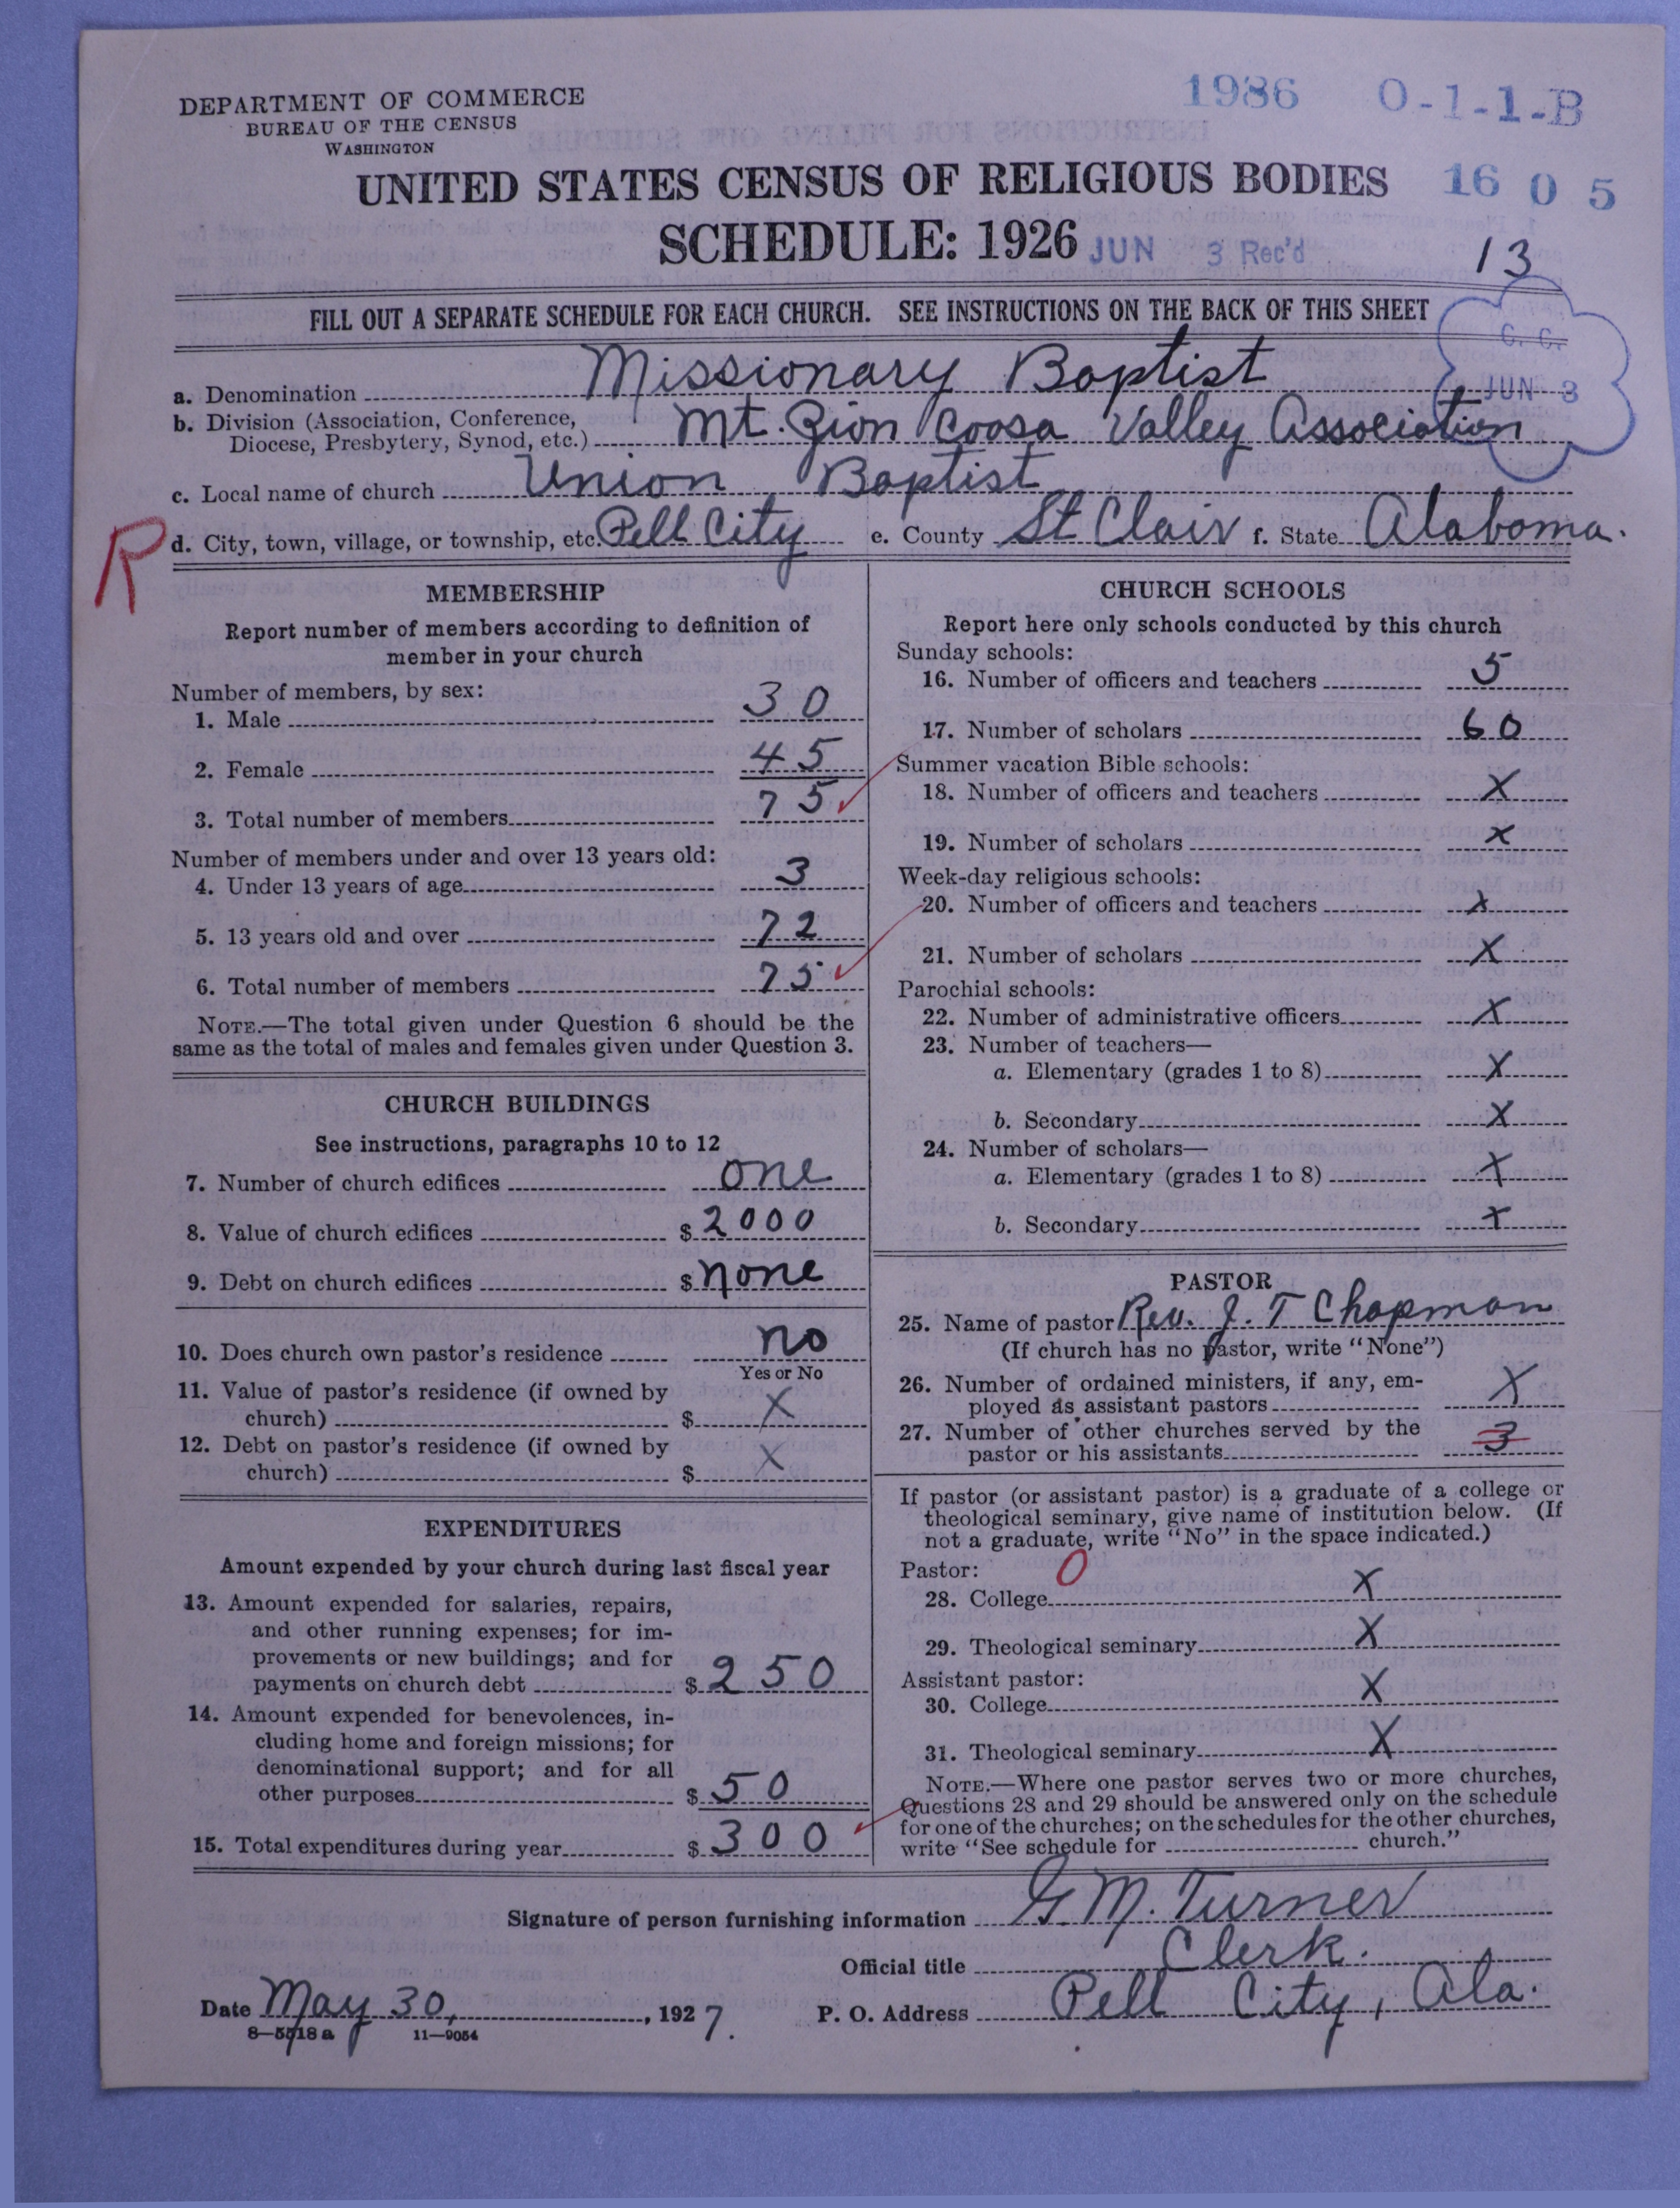 1986 0-1-1-B
DEPARTMENT OF COMMERCE
BUREAU OF THE CENSUS
WASHINGTON
UNITED STATES CENSUS OF RELIGIOUS BODIES 16 0 5
SCHEDULE: 1926 JUN 3 Rec'd 13
FILL OUT A SEPARATE SCHEDULE FOR EACH CHURCH. SEE INSTRUCTIONS ON THE BACK OF THIS SHEET
C. C.
JUN 3
a. Denomination Missionary Baptist
b. Division (Association, Conference,
Diocese, Presbytery, Synod, etc.) Mt. Zion Coosa Valley Association
c. Local name of church Union Baptist
R d. City, town, village, or township, etc. Pell City e. County St Clair f. State Alabama.
MEMBERSHIP
Report number of members according to definition of
member in your church
Number of members, by sex:
1. Male 30
2. Female 45
3. Total number of members 75
Number of members under and over 13 years old:
4. Under 13 years of age 3
5. 13 years old and over 72
6. Total number of members 75
NOTE.—The total given under Question 6 should be the
same as the total of males and females given under Question 3.
CHURCH BUILDINGS
See instructions, paragraphs 10 to 12
7. Number of church edifices one
8. Value of church edifices $ 2000
9. Debt on church edifices $ none
10. Does church own pastor's residence no
Yes or No
11. Value of pastor's residence (if owned by
church) $ X
12. Debt on pastor's residence (if owned by
church) $ X
EXPENDITURES
Amount expended by your church during last fiscal year
13. Amount expended for salaries, repairs,
and other running expenses; for im-
provements or new buildings; and for
payments on church debt $ 250
14. Amount expended for benevolences, in-
cluding home and foreign missions; for
denominational support; and for all
other purposes $ 50
15. Total expenditures during year $ 300
CHURCH SCHOOLS
Report here only schools conducted by this church
Sunday schools:
16. Number of officers and teachers 5
17. Number of scholars 60
Summer vacation Bible schools:
18. Number of officers and teachers X
19. Number of scholars X
Week-day religious schools:
20. Number of officers and teachers X
21. Number of scholars X
Parochial schools:
22. Number of administrative officers X
23. Number of teachers—
a. Elementary (grades 1 to 8) X
b. Secondary X
24. Number of scholars—
a. Elementary (grades 1 to 8) X
b. Secondary X
PASTOR
25. Name of pastor Rev. J. T Chapman
(If church has no pastor, write "None")
26. Number of ordained ministers, if any, em-
ployed as assistant pastors X
27. Number of other churches served by the
pastor or his assistants 3
If pastor (or assistant pastor) is a graduate of a college or
theological seminary, give name of institution below. (If
not a graduate, write "No" in the space indicated.)
Pastor: 0
28. College X
29. Theological seminary X
Assistant pastor:
30. College X
31. Theological seminary X
NOTE.—Where one pastor serves two or more churches,
Questions 28 and 29 should be answered only on the schedule
for one of the churches; on the schedules for the other churches,
write "See schedule for church."
Signature of person furnishing information G. M. Turner
Official title Clerk.
Date May 30, , 1927. P. O. Address Pell City, Ala.
8—5518 a 11—9054